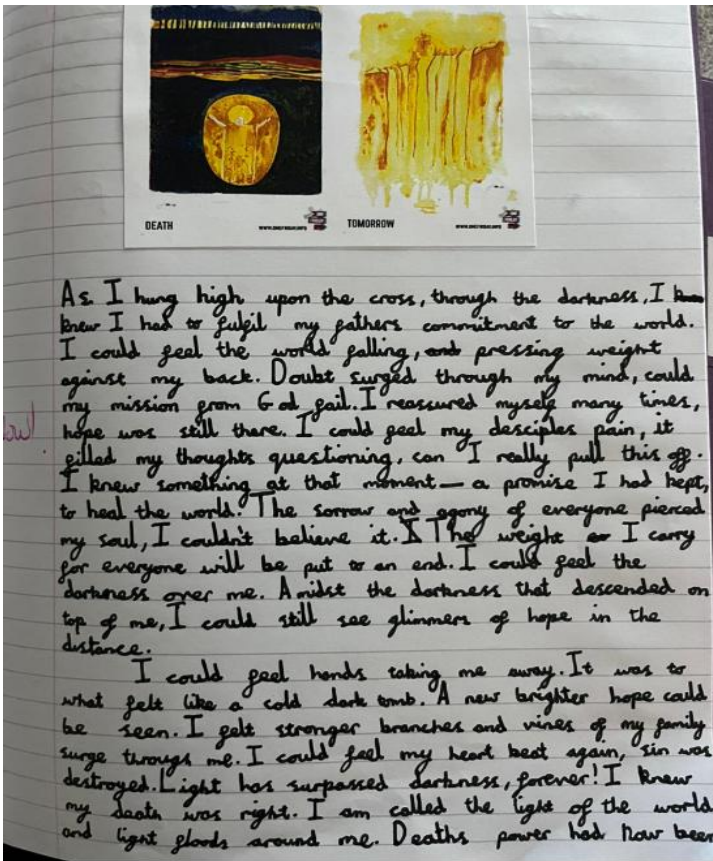 DEATH
TOMORROW
As I hung high upon the cross, through the darkness, I
knew I had to fulfil my fathers commitment to the world.
I could feel the world falling, and pressing weight
against my back. Doubt surged through my mind, could
my mission from God fail. I reassured myself many times,
hope was still there. I could feel my desciples pain, it
filled my thoughts questioning, can I really pull this off.
I knew something at that moment — a promise I had kept,
to heal the world. The sorrow and agony of everyone pierced
my soul, I couldn't believe it. The weight I carry
for everyone will be put to an end. I could feel the
darkness over me. Amidst the darkness that descended on
top of me, I could still see glimmers of hope in the
distance.
I could feel hands taking me away. It was to
what felt like a cold dark tomb. A new brighter hope could
be seen. I felt stronger branches and vines of my family
surge through me. I could feel my heart beat again, sin was
destroyed. Light has surpassed darkness, forever! I knew
my death was right. I am called the light of the world
and light floods around me. Deaths power had now been